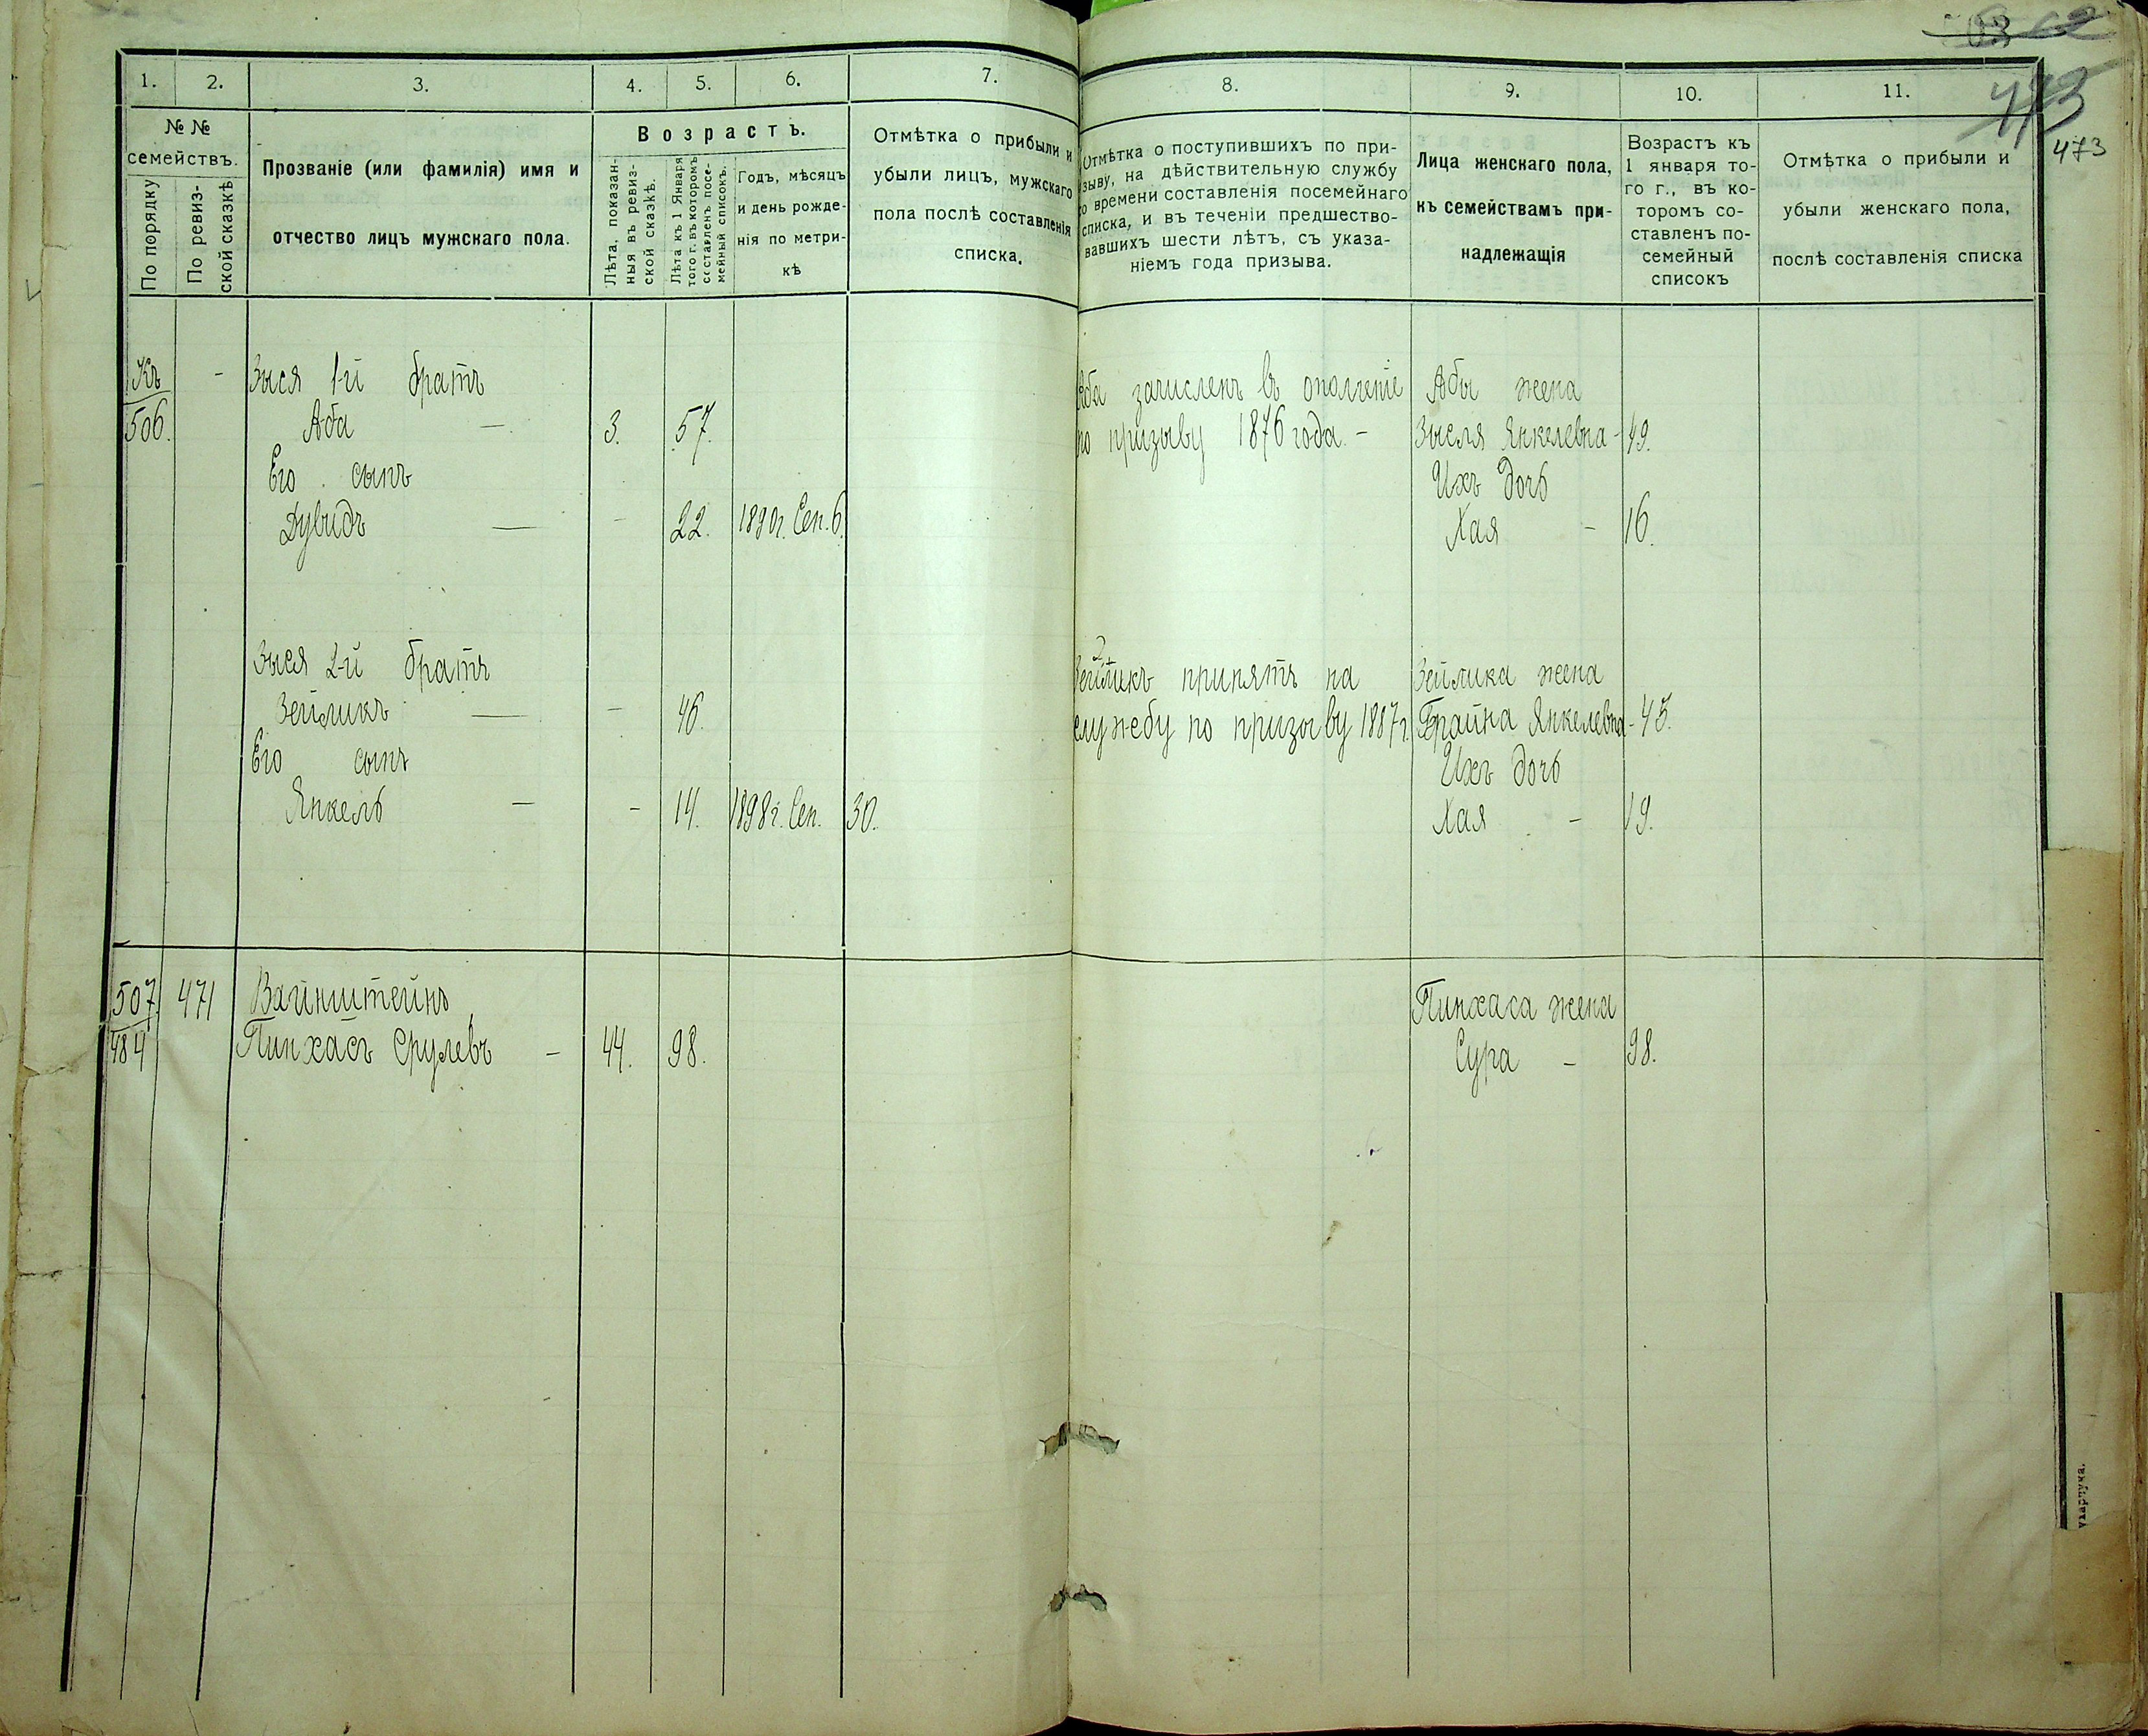 473
473
1. 2. 3. 4. 5. 6. 7. 8. 9. 10. 11.
№ №
семействъ.
По порядку
По ревиз-
ской сказкѣ
Прозваніе (или фамилія) имя и
отчество лицъ мужскаго пола.
Возрастъ.
Лѣта, показан-
ныя въ ревиз-
ской сказкѣ.
Лѣта къ 1 Января
того г. въ которомъ
составленъ посе-
мейный списокъ.
Годъ, мѣсяцъ
и день рожде-
нія по метри-
кѣ
Отмѣтка о прибыли и
убыли лицъ, мужскаго
пола послѣ составленія
списка.
Отмѣтка о поступившихъ по при-
зыву, на дѣйствительную службу
со времени составленія посемейнаго
списка, и въ теченіи предшество-
вавшихъ шести лѣтъ, съ указа-
ніемъ года призыва.
Лица женскаго пола,
къ семействамъ при-
надлежащія
Возрастъ къ
1 января то-
го г., въ ко-
торомъ со-
ставленъ по-
семейный
списокъ
Отмѣтка о прибыли и
убыли женскаго пола,
послѣ составленія списка
Къ - Зыся 1-й братъ Аба зачисленъ въ Абы жена
506. Аба — 3. 57. по призыву 1876 года. - Зысля Янкелевна - 49.
Его сынъ Ихъ дочь
Дувидъ — - 22. 1890г. Сен. 6. Хая - 16.
Зыся 2-й братъ Зейликъ принятъ на Зейлика жена
Зейликъ — - 46. службу по призыву 1887г. Брайна Янкелевна - 45.
Его сынъ Ихъ дочь
Янкель — - 14. 1898г. Сен. 30. Хая - 19.
507 471 Вайнштейнъ Пинхаса жена
484 Пинхасъ Срулевъ - 44. 98. Сура - 98.